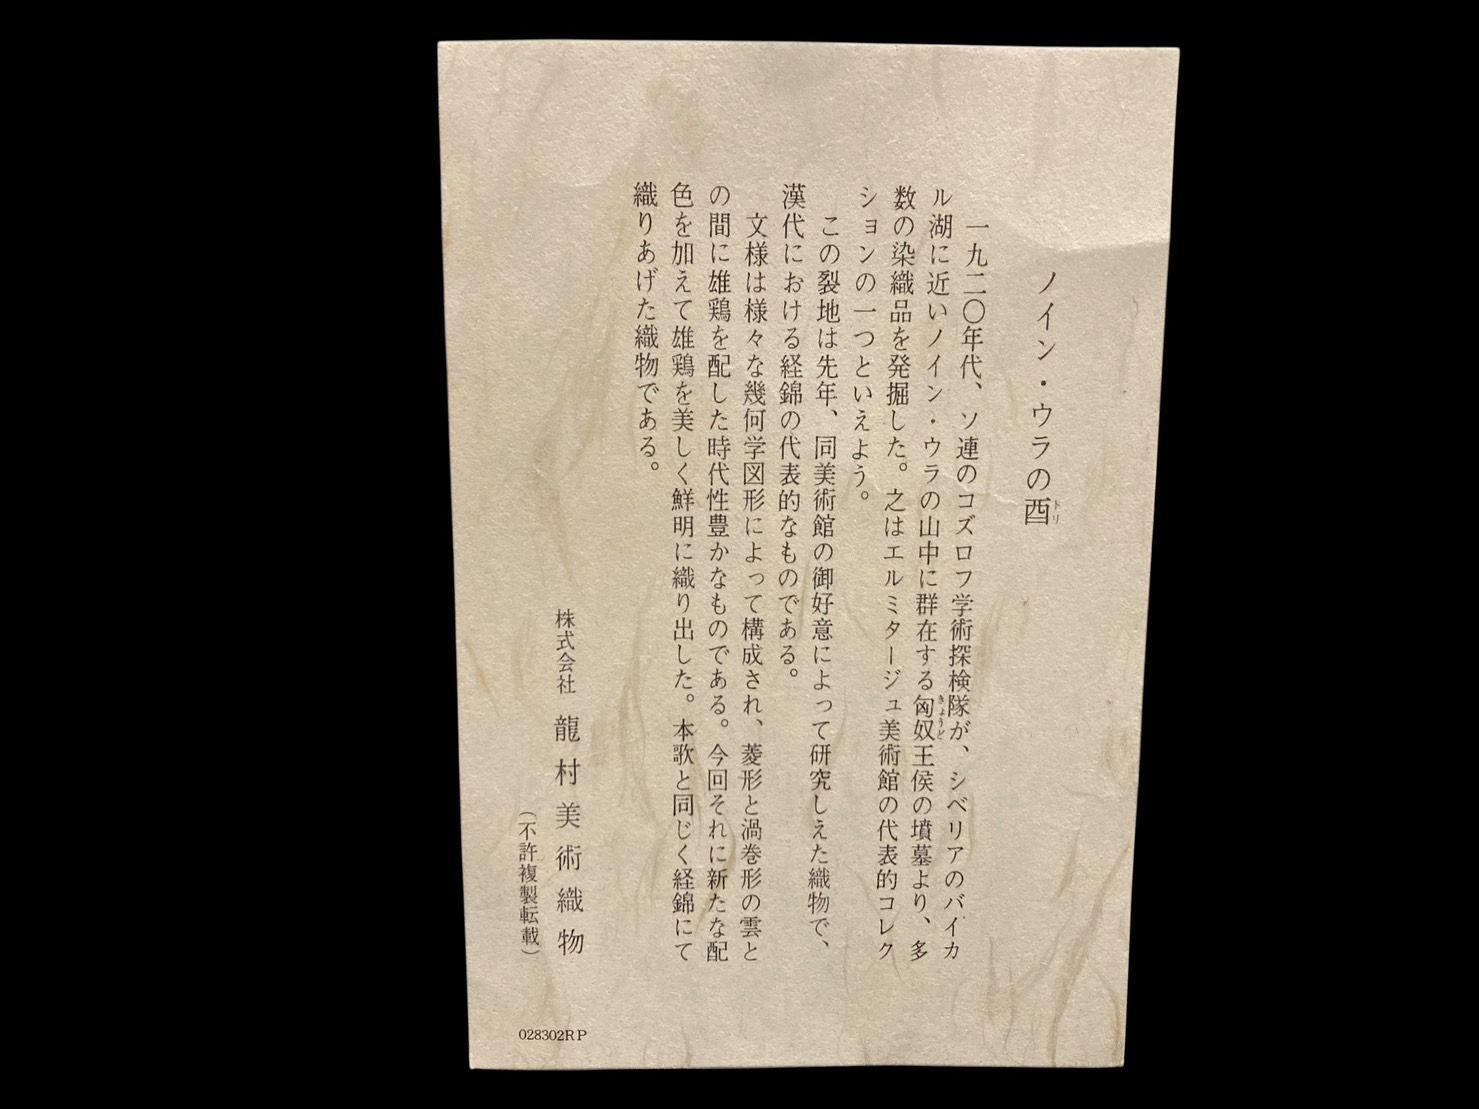 ノイン・ウラの酉
ドリ
一九二〇年代、ソ連のコズロフ学術探検隊が、シベリアのバイカ
ル湖に近いノイン・ウラの山中に群在する匈奴王侯の墳墓より、多
きょうど
数の染織品を発掘した。之はエルミタージュ美術館の代表的コレク
ションの一つといえよう。
この裂地は先年、同美術館の御好意によって研究しえた織物で、
漢代における経錦の代表的なものである。
文様は様々な幾何学図形によって構成され、菱形と渦巻形の雲と
の間に雄鶏を配した時代性豊かなものである。今回それに新たな配
色を加えて雄鶏を美しく鮮明に織り出した。本歌と同じく経錦にて
織りあげた織物である。
株式会社 龍村美術織物
(不許複製転載)
028302RP